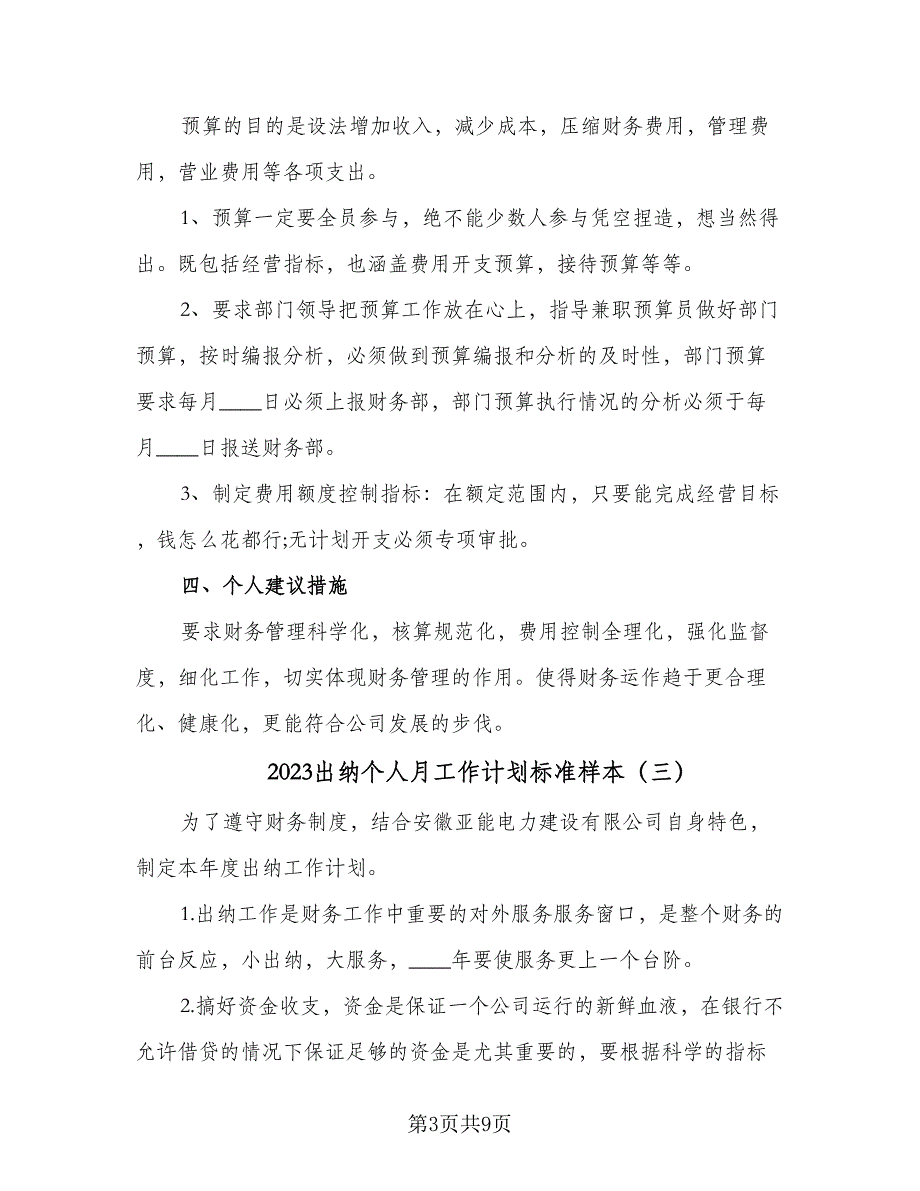 预算的目的是设法增加收入，减少成本，压缩财务费用，管理费
用，营业费用等各项支出。
1、预算一定要全员参与，绝不能少数人参与凭空捏造，想当然得
出。既包括经营指标，也涵盖费用开支预算，接待预算等等。
2、要求部门领导把预算工作放在心上，指导兼职预算员做好部门
预算，按时编报分析，必须做到预算编报和分析的及时性，部门预算
要求每月____日必须上报财务部，部门预算执行情况的分析必须于每
月____日报送财务部。
3、制定费用额度控制指标：在额定范围内，只要能完成经营目标
，钱怎么花都行;无计划开支必须专项审批。
四、个人建议措施
要求财务管理科学化，核算规范化，费用控制全理化，强化监督
度，细化工作，切实体现财务管理的作用。使得财务运作趋于更合理
化、健康化，更能符合公司发展的步伐。
2023出纳个人月工作计划标准样本（三）
为了遵守财务制度，结合安徽亚能电力建设有限公司自身特色，
制定本年度出纳工作计划。
1.出纳工作是财务工作中重要的对外服务服务窗口，是整个财务的
前台反应，小出纳，大服务，____年要使服务更上一个台阶。
2.搞好资金收支，资金是保证一个公司运行的新鲜血液，在银行不
允许借贷的情况下保证足够的资金是尤其重要的，要根据科学的指标
第3页共9页